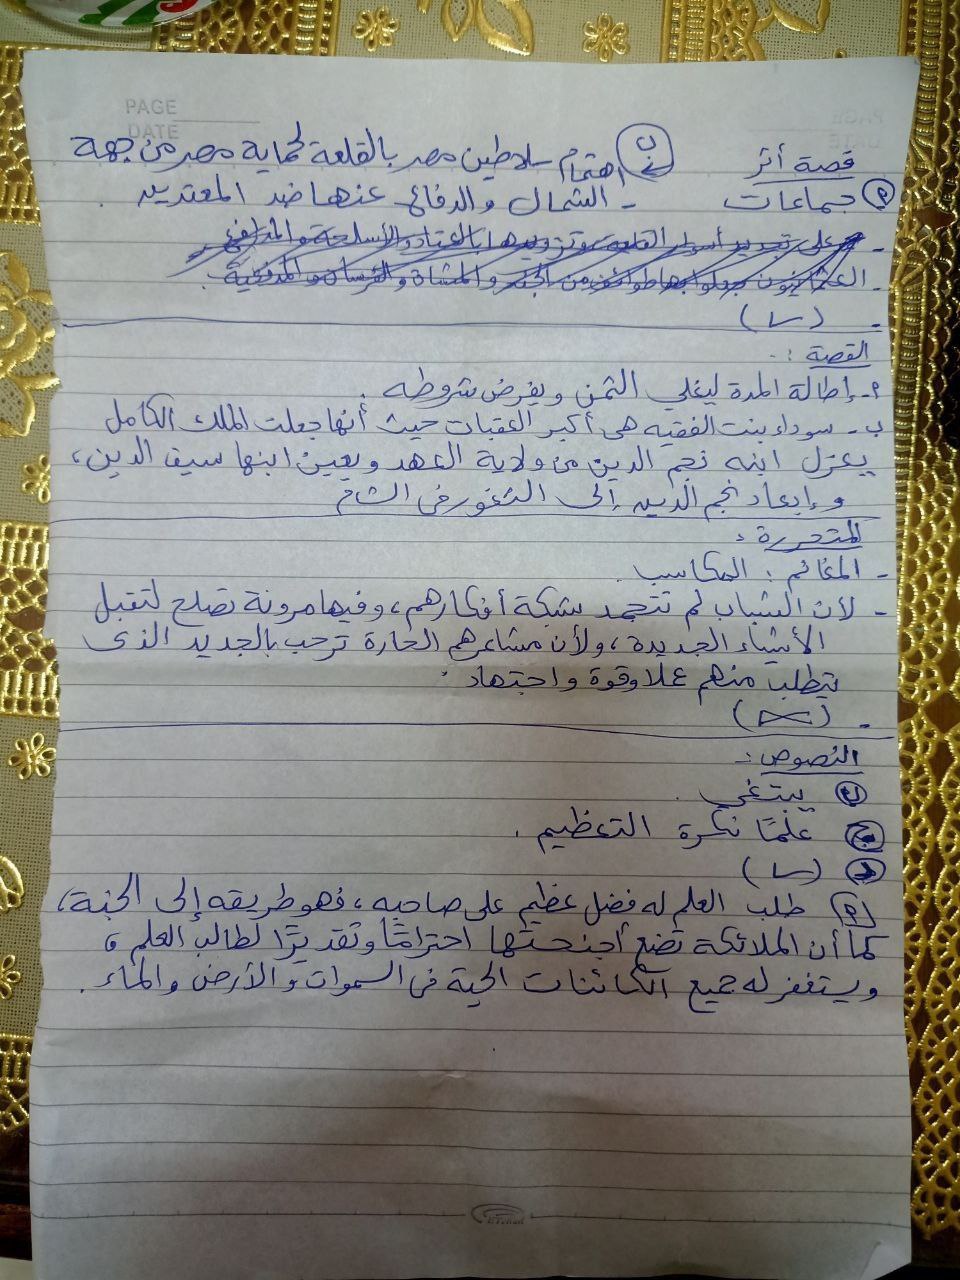 PAGE
DATE
قصة أثر
ب اهتمام سلاطين مصر بالقلعة لحماية مصر من جهة
أ جماعات
- الشمال والدفاع عنها ضد المعتدين .
- على تجديد أسوار القلعة وتزويدها بالعتاد والأسلحة والمدافع
- العثمانيون جعلوا بها طوائف من الجند والمشاة والفرسان والمدفعية .
- (✓)
القصة :-
أ- إطالة المدة ليغلي الثمن ويفرض شروطه .
ب- سوداء بنت الفقيه هى أكبر العقبات حيث أنها جعلت الملك الكامل
يعزل ابنه نجم الدين من ولاية العهد ويعين ابنها سيف الدين،
وإبعاد نجم الدين إلى الثغور فى الشام
المتحررة :
- المغانم : المكاسب .
- لأن الشباب لم تتجمد شبكة أفكارهم، وفيها مرونة تصلح لتقبل
الأشياء الجديدة، ولأن مشاعرهم الحارة ترحب بالجديد الذى
يتطلب منهم عملا وقوة واجتهاد .
- (✗)
النصوص :-
يبتغي .
ج علمًا نكرة التعظيم .
(✓)
أ طلب العلم له فضل عظيم على صاحبه، فهو طريقه إلى الجنة،
كما أن الملائكة تضع أجنحتها احترامًا وتقديرًا لطالب العلم،
ويستغفر له جميع الكائنات الحية فى السموات والأرض والماء .